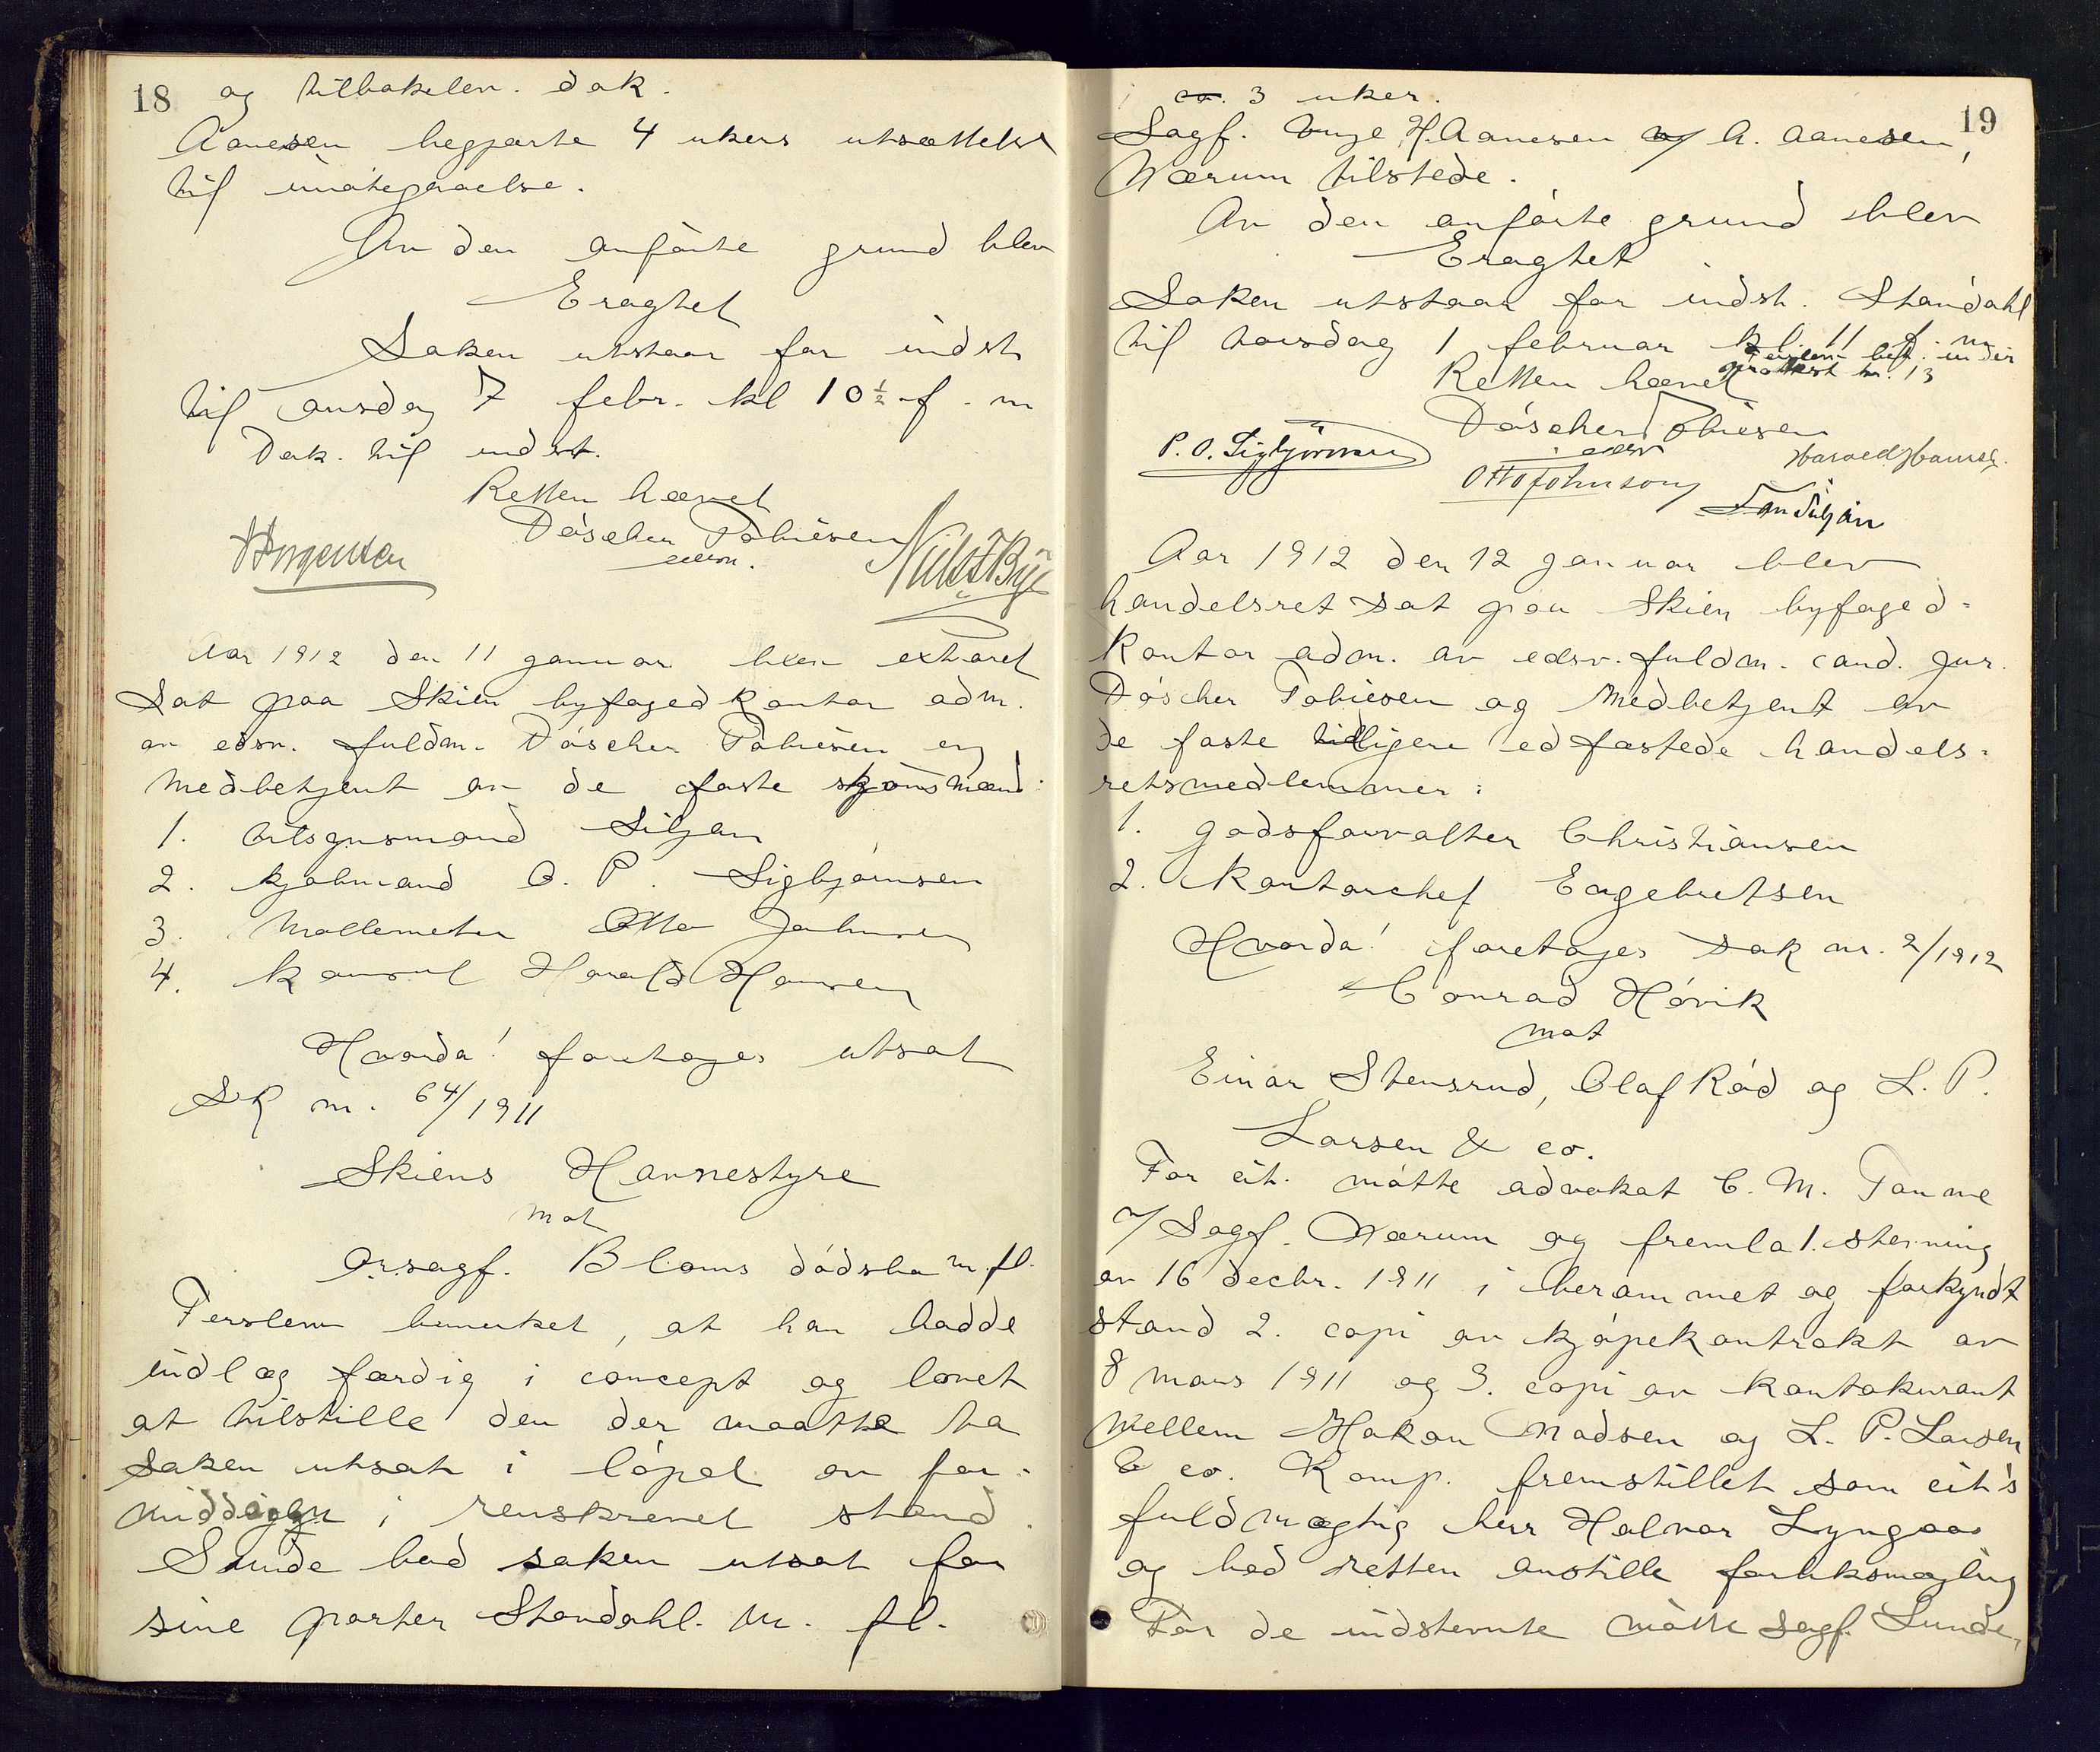 18
og tilbakelev. dok.
Aanesen begjærte 4 ukers utsættelse
til imøtegaaelse.
Av den anførte grund blev
Eragtet
Saken utstaar for indst.
til onsdag 7 febr. kl 10½ f. m
Dok. til indst.
Retten hævet
Døscher Tobiesen
edsv.
Aar 1912 den 11 januar blev extraret
sat paa Skien byfogedkontor adm.
av edsv. fuldm. Døscher Tobiesen og
medbetjent av de faste skjønsmænd:
1. Siljan
2. kjøbmand O. P. Sigbjørnsen
3. Møllemester Otto Johnsen
4. konsul Harald Hansen
Hvorda! foretoges utsat
SK nr. 64/1911
Skiens Havnestyre
mot
O.r.sagf. Bloms dødsbo m. fl.
Terslew bemerket, at han hadde
indlæg færdig i concept og lovet
at tilstille den der maatte ha
saken utsat i løpet av for-
middagen i renskrevet stand.
Sunde bad saken utsat for
sine parter Standahl. m. fl.
19
ca. 3 uker.
Sagf. Unge, H. Aanesen v/ A. Aanesen,
Værum tilstede.
Av den anførte grund blev
Eragtet
Saken utstaar for indst. Standahl
til torsdag 1 februar kl. 11 f. m
Retten hævet
Døscher Tobiesen
edsv
P. O. Sigbjørnsen
Harald Hansen
Otto Johnsen
Siljan
Aar 1912 den 12 januar blev
handelsret sat paa Skien byfoged-
kontor adm. av edsv. fuldm. cand. jur.
Døscher Tobiesen og medbetjent av
de faste tidligere edfæstede handels-
retsmedlemmer:
1. godsforvalter Christiansen
2. Kontorchef Engebretsen
Hvorda! foretoges sak nr. 2/1912
Conrad Høvik
mot
Einar Stensrud, Olaf Rød og L. P.
Larsen & co.
For cit. møtte advokat C. M. Tanme
v/ Sagf. Værum og fremla 1. stevning
av 16 decbr. 1911 i berammet og forkyndt
stand 2. copi av kjøpekontrakt av
8 mars 1911 og 3. copi av kontokurant
mellem Hakon Madsen og L. P. Larsen
& co. Komp. fremstillet som cit's
fuldmægtig herr Halvor Lyngaas
og bad retten anstille forliksmægling
For de indstevnte møtte sagf. Sunde,